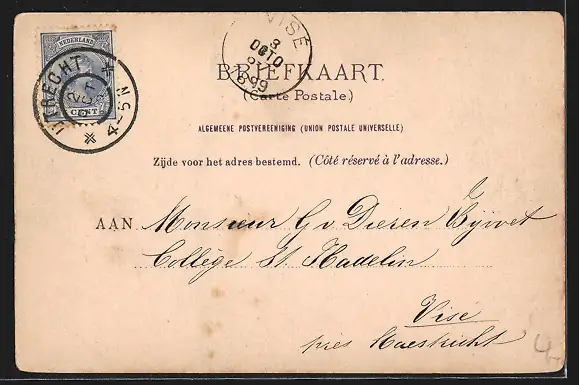 NEDERLAND
CENT
UTRECHT
2
OCT
4–5N
VISÉ
3
OCTO
1899
BRIEFKAART.
(Carte Postale.)
ALGEMEENE POSTVEREENIGING (UNION POSTALE UNIVERSELLE)
Zijde voor het adres bestemd. (Côté réservé à l'adresse.)
AAN Monsieur G v Dieren Bijvoet
Collège St. Hadelin
Vise
près Maestricht